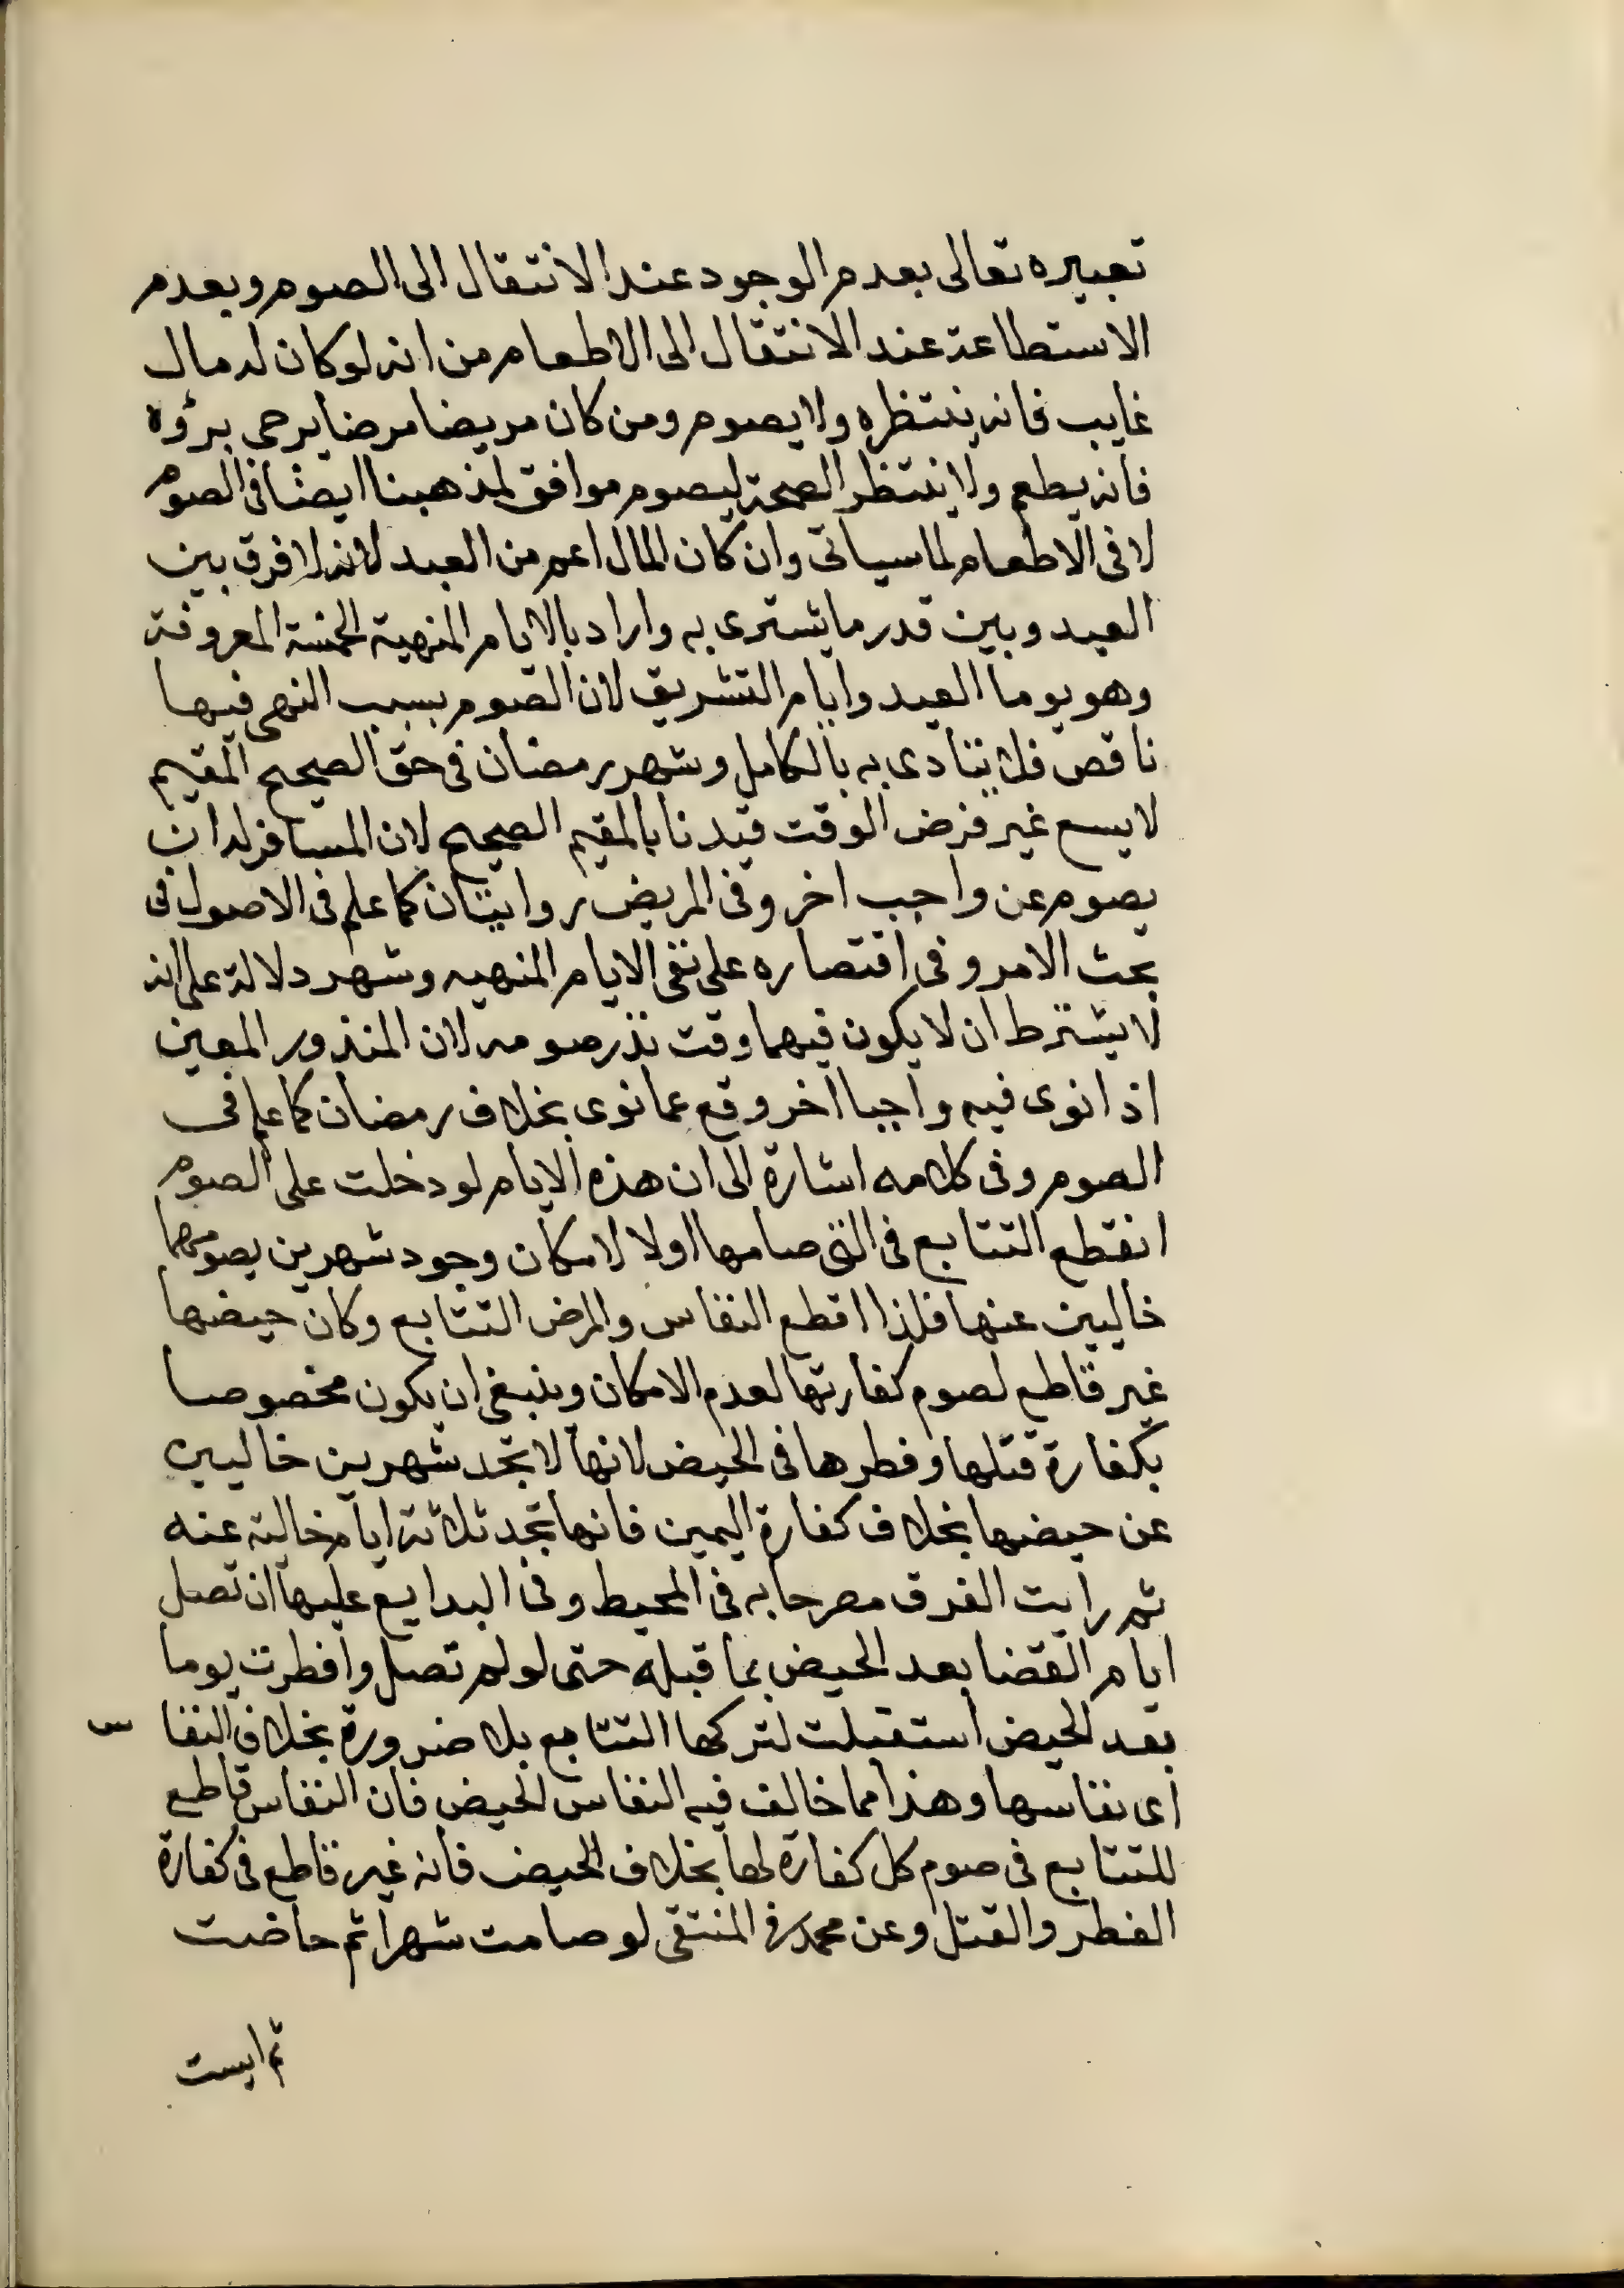 تعبيره تعالى بعدم الوجود عند الانتقال الى الصوم وبعدم
الاستطاعة عند الانتقال الى الاطعام من انه لوكان له مال
غايب فانه ينتظره ولا يصوم ومن كان مريضا مرضا يرجى برؤه
فانه يطعم ولا ينتظر الصحة ليصوم موافق لمذهبنا ايضا في الصوم
لا في الاطعام لما سياتى وان كان المال اعم من العبد لانه لا فرق بين
العبد وبين قدر ما يشترى به واراد بالايام المنهية الخمسة المعروفة
وهو يوما العيد وايام التشريق لان الصوم بسبب النهى فيها
ناقص فلا يتادى به بالكامل وشهر رمضان فى حق الصحيح المقيم
لا يسع غير فرض الوقت قيدنا بالمقيم الصحيح لان المسافر له ان
يصوم عن واجب اخر وفى المريض روايتان كما علم فى الاصول فى
بحث الامر وفى اقتصاره على نفى الايام المنهيه وشهر دلالة على انه
لا يشترط ان لا يكون فيهما وقت نذر صومه لان المنذور المعين
اذا نوى فيه واجبا اخر وقع عما نوى بخلاف رمضان كما علم فى
الصوم وفى كلامه اشارة الى ان هذه الايام لو دخلت على الصوم
انقطع التتابع فى التى صامها اولا لامكان وجود شهرين يصومهما
خاليين عنها فلذا اقطع النفاس والمرض التتابع وكان حيضها
غير قاطع لصوم كفارتها لعدم الامكان وينبغى ان يكون مخصوصا
بكفارة قتلها وفطرها فى الحيض لانها لا تجد شهرين خاليين
عن حيضها بخلاف كفارة اليمين فانها تجد ثلاثة ايام خالية عنه
ثم رايت الفرق مصرحا به فى المحيط وفى البدايع عليها ان تصل
ايام القضا بعد الحيض بما قبله حتى لو لم تصل وافطرت يوما
بعد الحيض استقبلت لتركها التتابع بلا ضرورة بخلاف النفا س
اى نفاسها وهذا مما خالف فيه النفاس الحيض فان النفاس قاطع
للتتابع فى صوم كل كفارة لها بخلاف الحيض فانه غير قاطع فى كفارة
الفطر والقتل وعن محمد فى المنتقى لو صامت شهرا ثم حاضت
ثم ايست